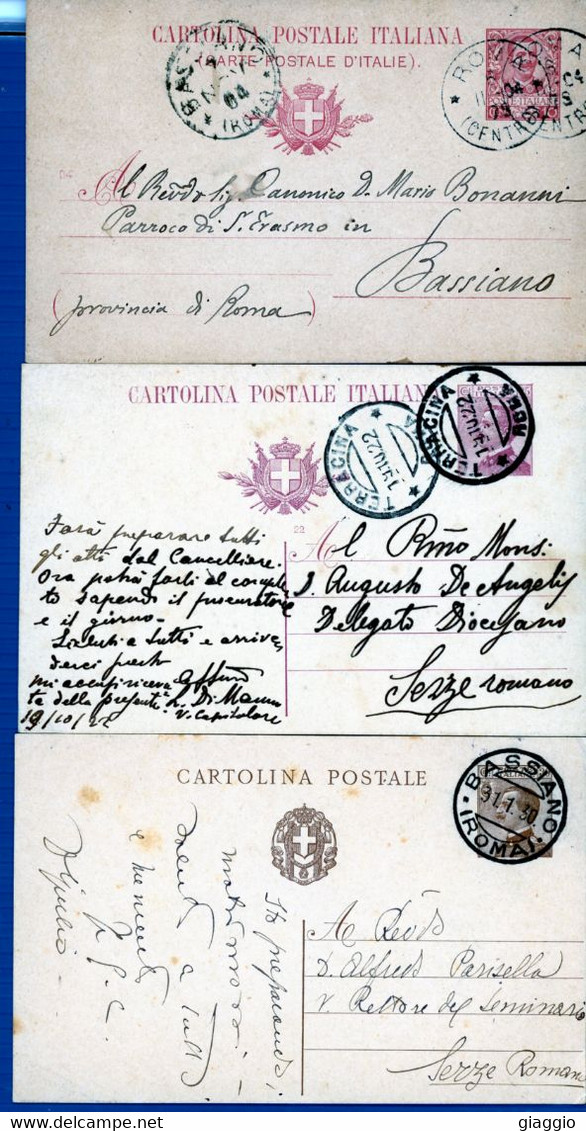 CARTOLINA POSTALE ITALIANA
(CARTE POSTALE D'ITALIE).
BASSIANO
(ROMA)
ROMA
(CENTRO)
Al Revdo Sig. Canonico D. Mario Bonanni
Parroco di S. Erasmo in
Bassiano
(provincia di Roma)
CARTOLINA POSTALE ITALIANA
TERRACINA
19.10.22
ROMA
TERRACINA
19.10.22
ROMA
22
Farà preparare tutti
gli atti dal Cancelliere.
Ora potrà farli al comple
to sapendo il procuratore
e il giorno.
Saluti a tutti e arrive
derci presto
mi accusi riceva
ta della presente
V. Capitolare
19/10/22
Al Rmo Mons.
D. Augusto De Angelis
Delegato Diocesano
Sezze romano
CARTOLINA POSTALE
BASSIANO
31.1.30
(ROMA)
Sto preparando
a tutti
A Revdo
D. Alfredo Parisella
V. Rettore del Seminario
Sezze Romano
viaggio